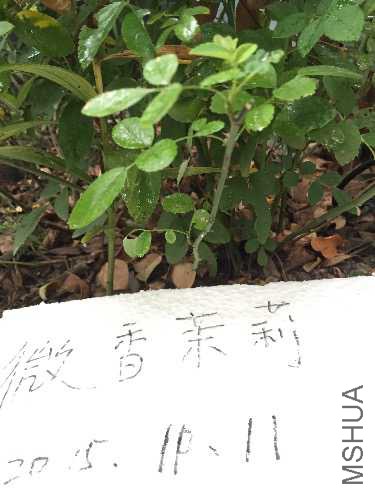 微香茉莉
2015.10.11
MSHUA